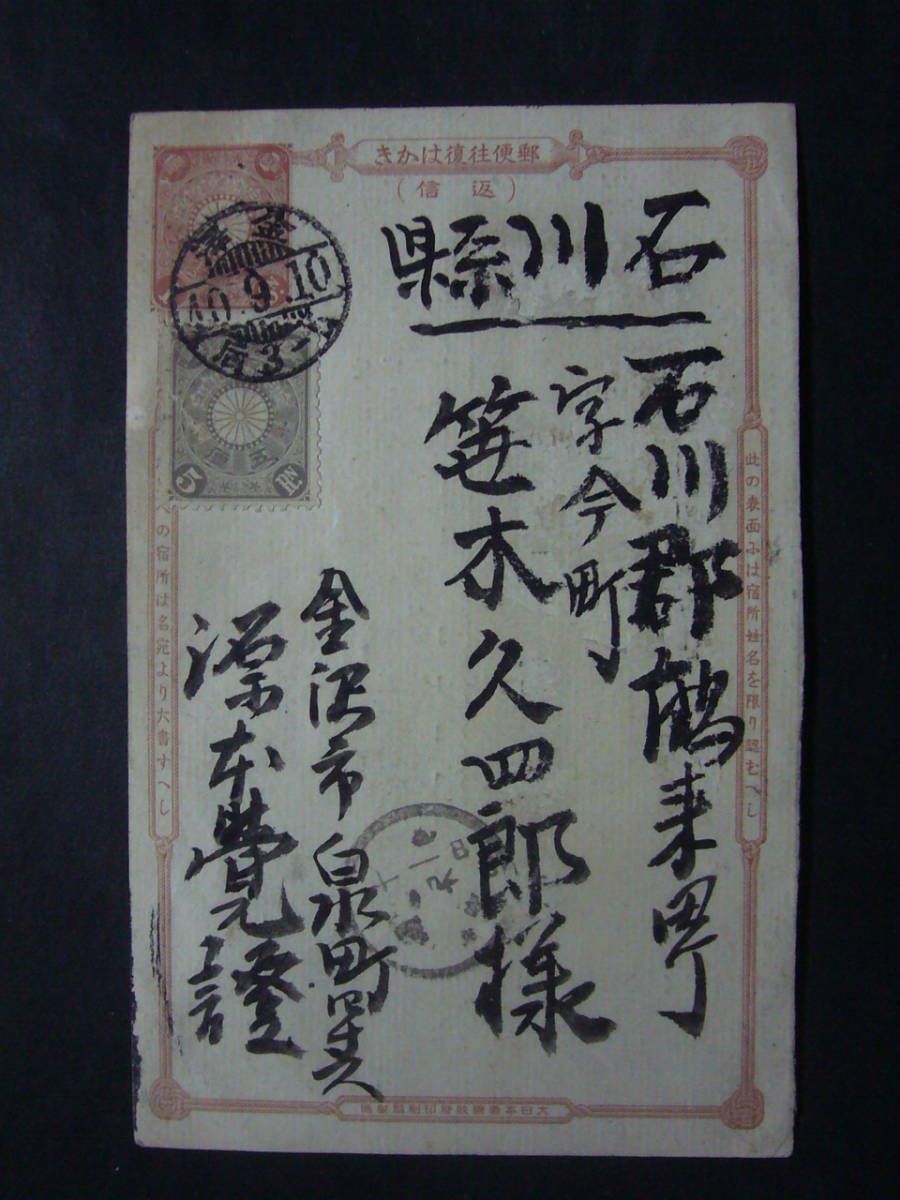 郵便往復はかき
（返信）
石川縣
石川郡鶴来町
字今町
笹木久四郎様
金沢市泉町
源本覺證
金澤
40.9.10
后3-
五厘
5 RN
此の表面には宿所姓名を限り認むへし
の宿所は名宛より六書すへし
大日本帝國政府印刷局製造